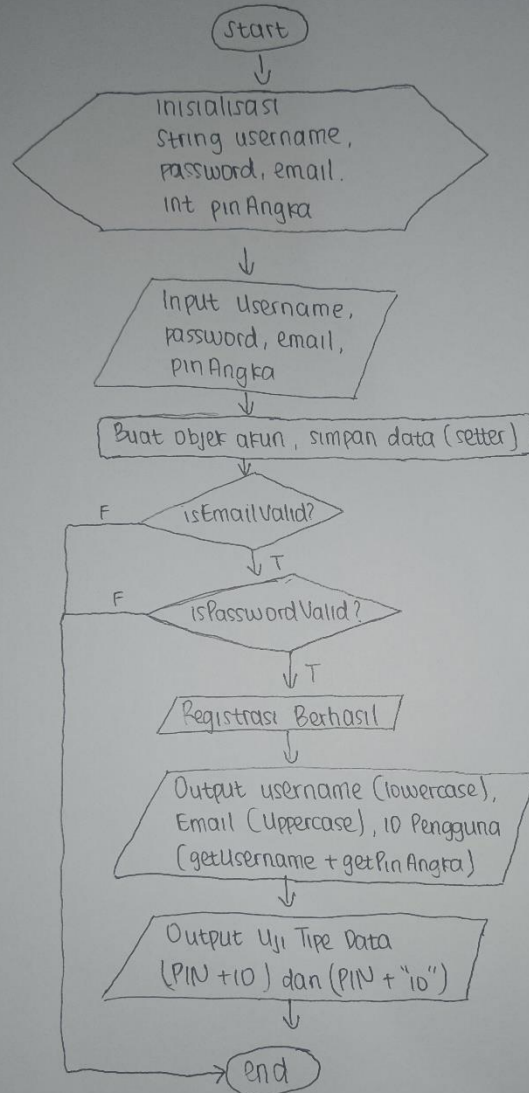 Start
Inisialisasi
String username,
password, email.
Int pinAngka
Input Username,
password, email,
pinAngka
Buat objek akun, simpan data (setter)
isEmailValid?
F
T
isPasswordValid?
F
T
Registrasi Berhasil
Output username (lowercase),
Email (Uppercase), ID Pengguna
(getUsername + getPinAngka)
Output Uji Tipe Data
(PIN +10) dan (PIN + "10")
end